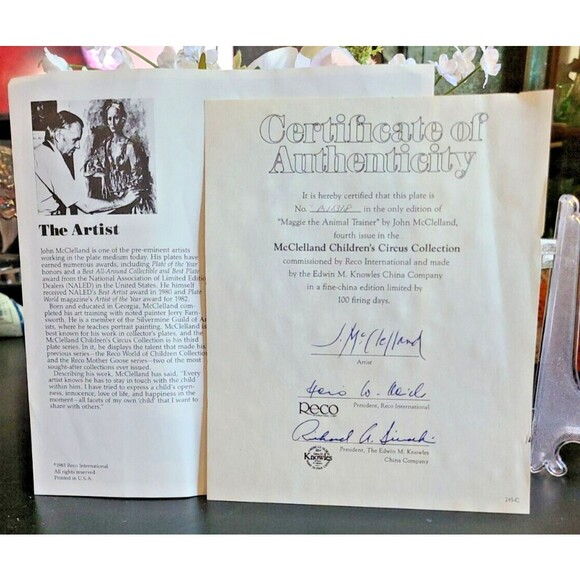 The Artist
John McClelland is one of the pre-eminent artists
working in the plate medium today. His plates have
earned numerous awards, including Plate of the Year
honors and a Best All-Around Collectible and Best Plate
award from the National Association of Limited Edition
Dealers (NALED) in the United States. He himself
received NALED's Best Artist award in 1980 and Plate
World magazine's Artist of the Year award for 1982.
Born and educated in Georgia, McClelland com-
pleted his art training with noted painter Jerry Farns-
worth. He is a member of the Silvermine Guild of
ists, where he teaches portrait painting. McClelland is
best known for his work in collector's plates, and the
McClelland Children's Circus Collection is his third
plate series. In it, he displays the talent that made his
previous series—the Reco World of Children Collection
and the Reco Mother Goose series—two of the most
sought-after collections ever issued.
Describing his work, McClelland has said, "Every
artist knows he has to stay in touch with the child
within him. I have tried to express a child's open-
ness, innocence, love of life, and happiness in the
moment—all facets of my own 'child' that I want to
share with others."
©1983 Reco International
All rights reserved.
Printed in U.S.A.
Certificate of
Authenticity
It is hereby certified that this plate is
No. in the only edition of
"Maggie the Animal Trainer" by John McClelland,
fourth issue in the
McClelland Children's Circus Collection
commissioned by Reco International and made
by the Edwin M. Knowles China Company
in a fine-china edition limited by
100 firing days.
J. McClelland
Artist
Reco
President, Reco International
President, The Edwin M. Knowles
China Company
Knowles